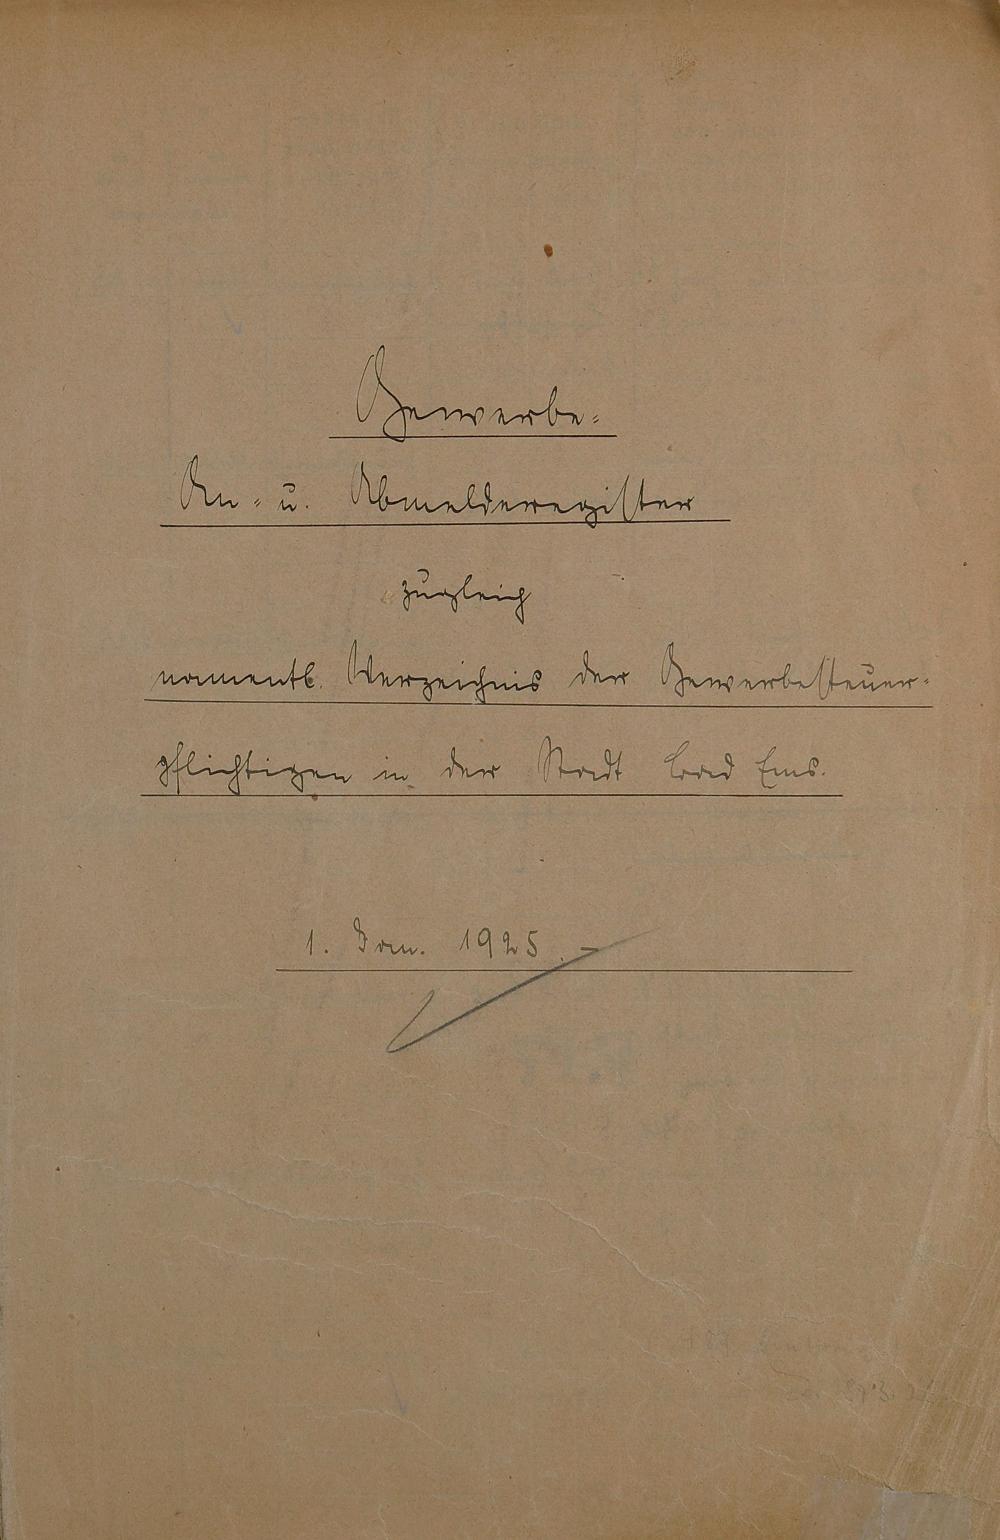 Gewerbe=
An= u. Abmelderegister
zugleich
namentl. Verzeichnis der Gewerbesteuer=
pflichtigen in der Stadt Bad Ems.
1. Jan. 1925. –